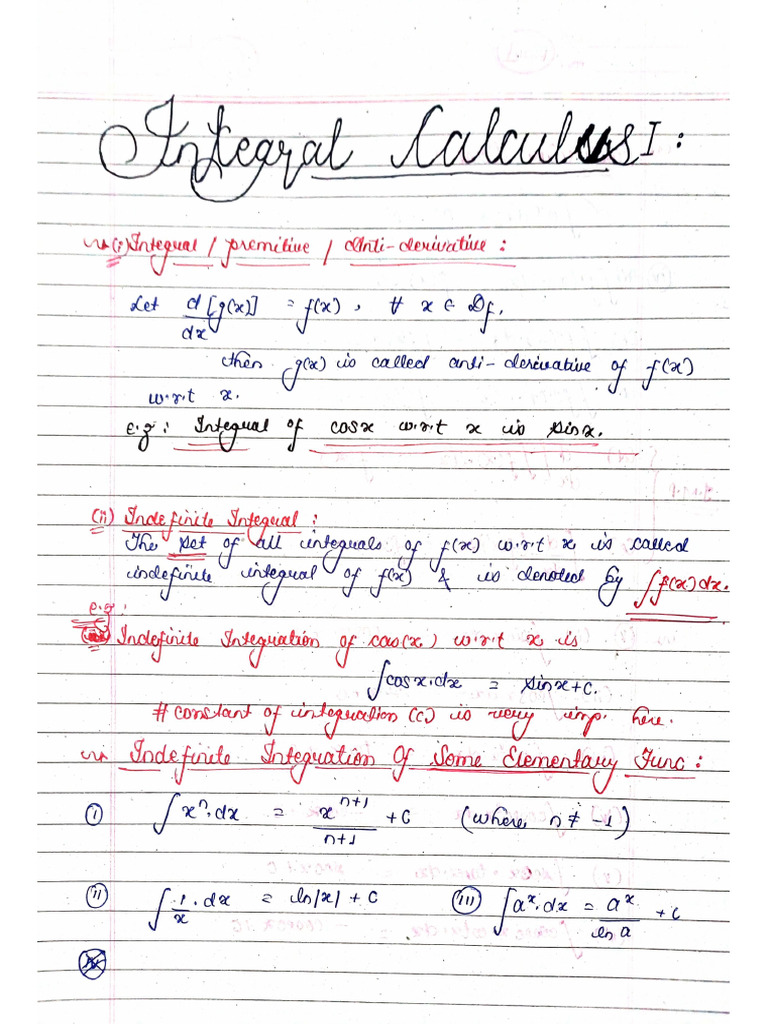 Integral Calculus I :
(i) Integral / premitive / Anti-derivative :
Let d/dx [g(x)] = f(x), ∀ x ∈ Df.
then g(x) is called anti-derivative of f(x)
w.r.t x.
e.g : Integral of cosx w.r.t x is sinx.
(ii) Indefinite Integral :
The set of all integrals of f(x) w.r.t x is called
indefinite integral of f(x) & is denoted by ∫f(x)dx.
e.g :
Indefinite Integration of cos(x) w.r.t x is
∫cosx.dx = sinx+c.
# constant of integration (c) is very imp. here.
Indefinite Integration Of Some Elementary Func :
(i) ∫x^n.dx = x^(n+1)/(n+1) + c (where, n ≠ -1)
(ii) ∫1/x.dx = ln|x| + c (iii) ∫a^x.dx = a^x/ln a + c